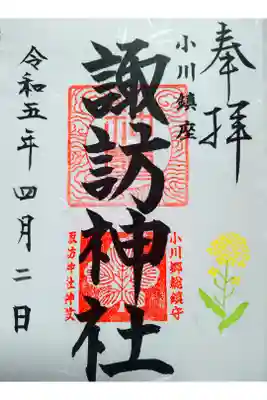 奉拝
小川鎮座
諏訪神社
小川郷総鎮守
諏方神社神紋
令和五年四月二日